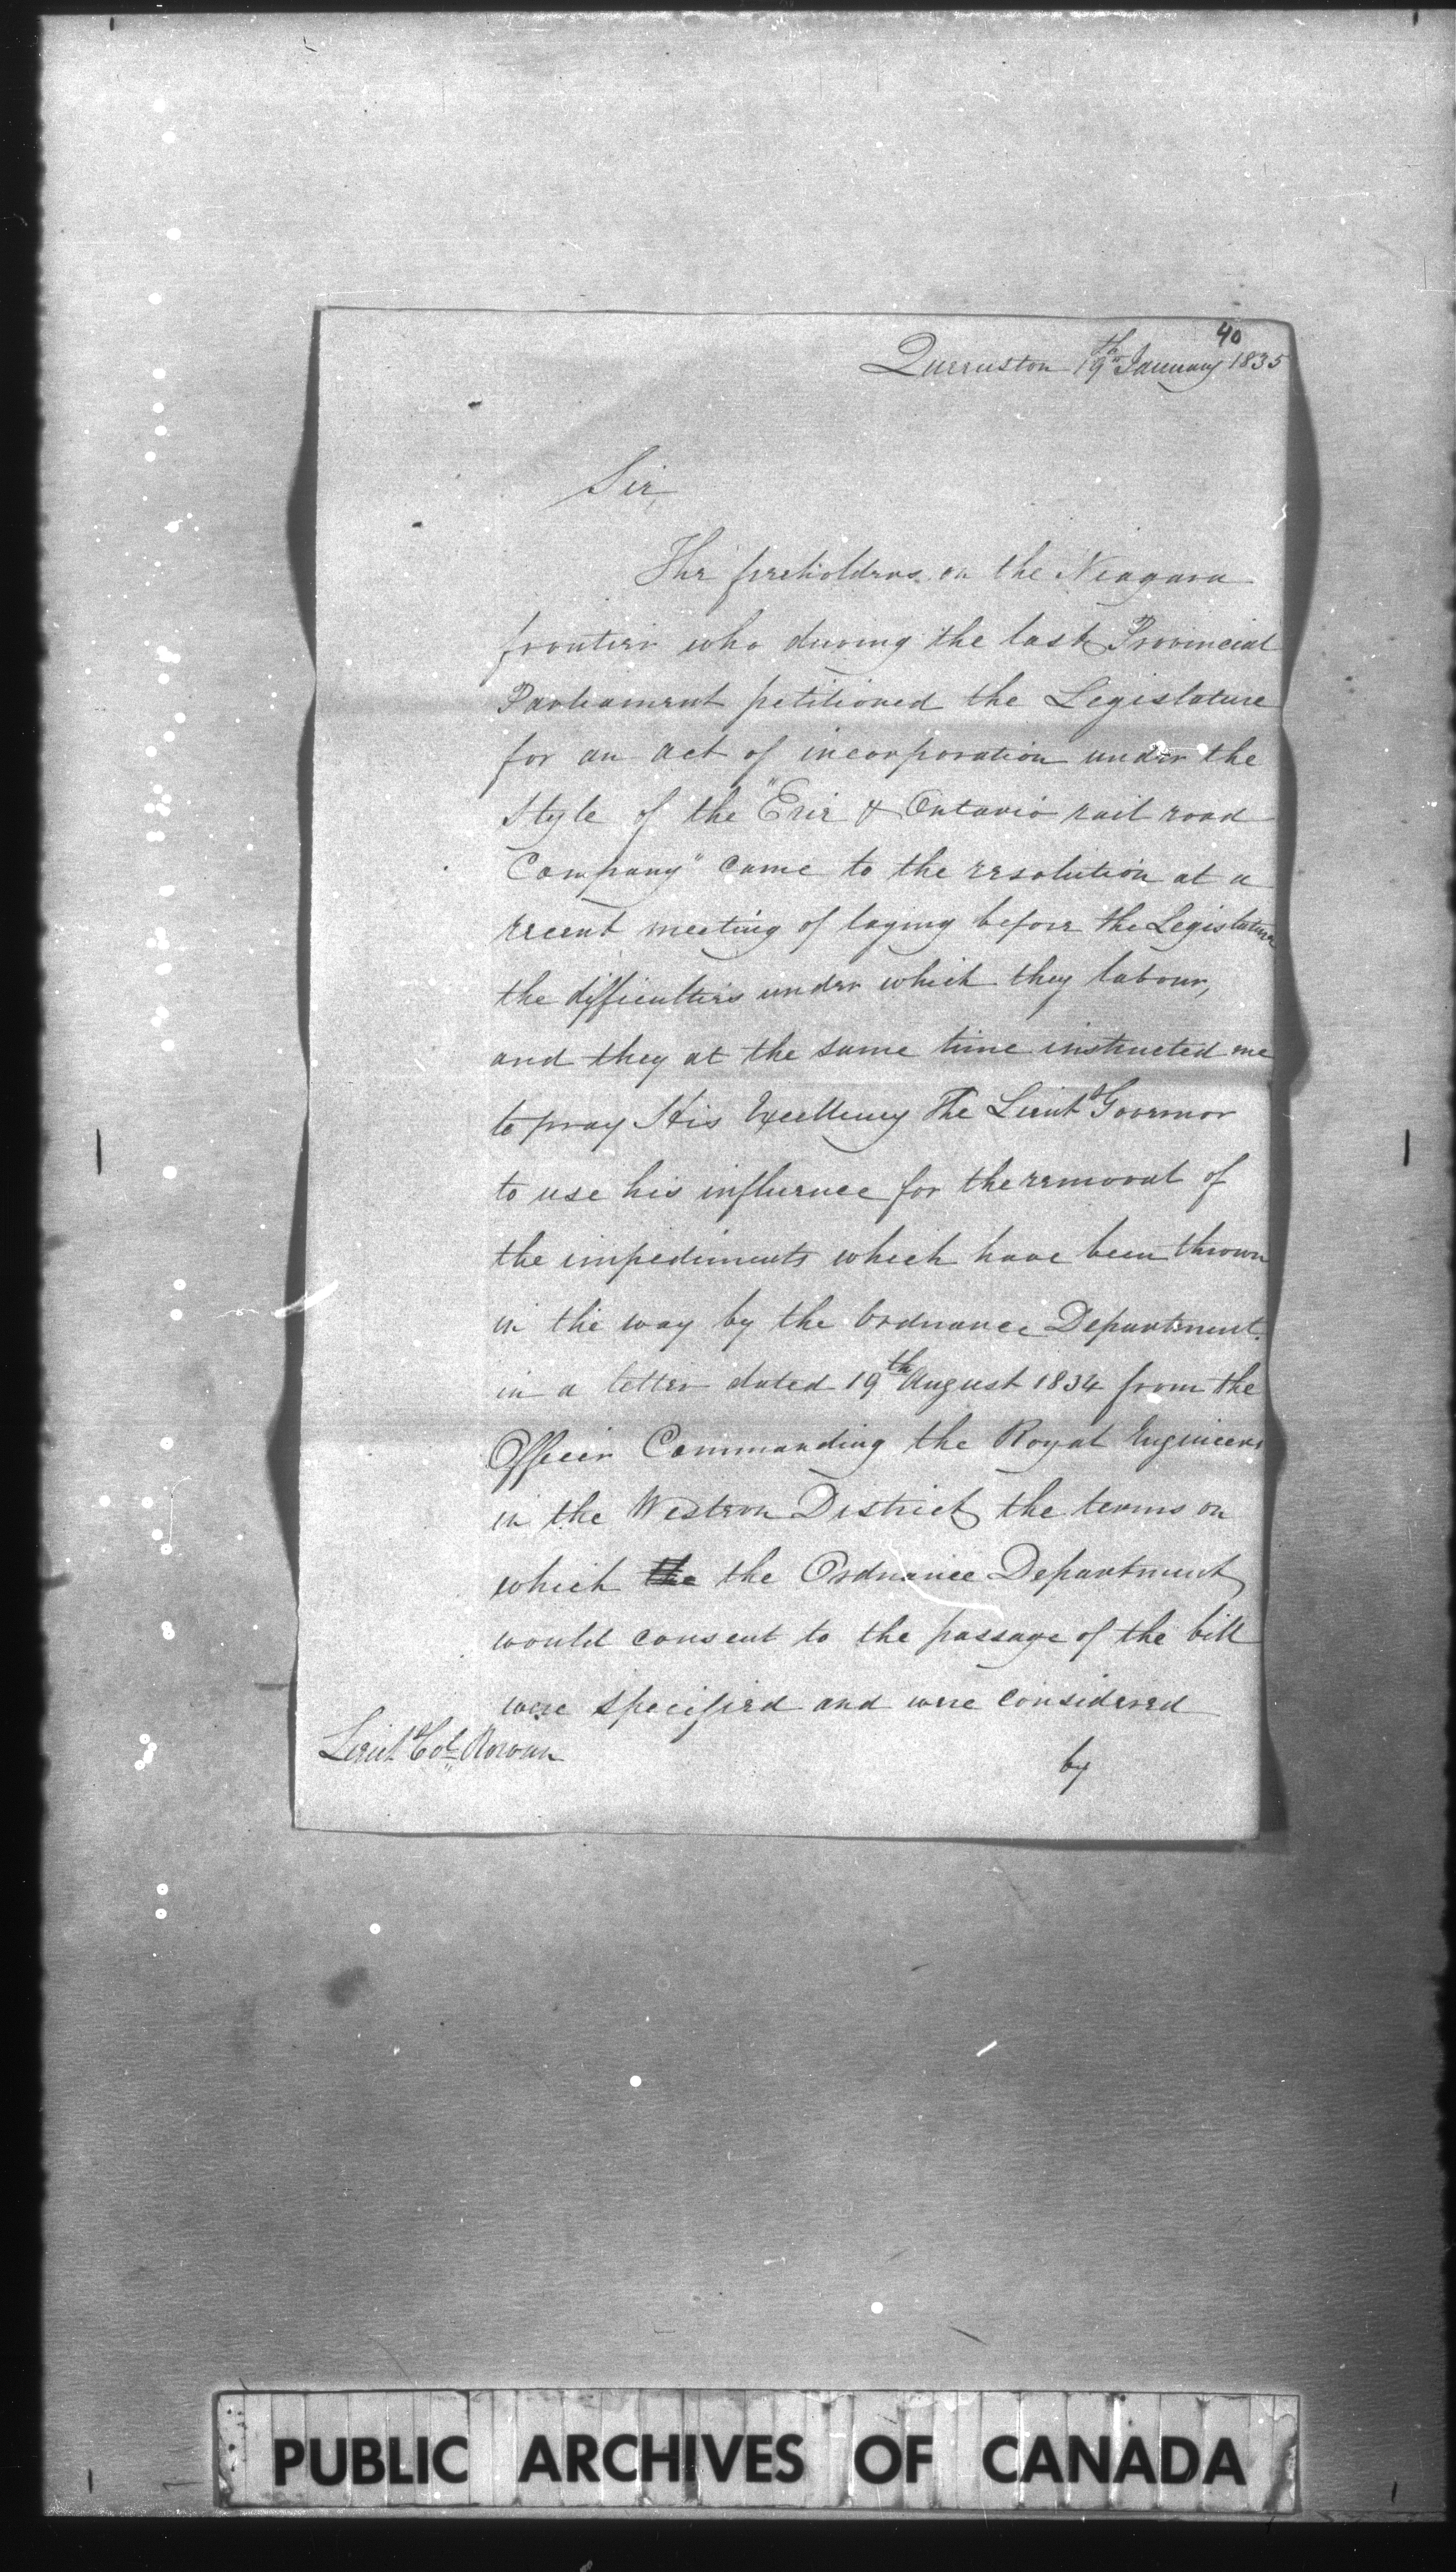 40
Queenston 19th January 1835
Sir,
The freeholders on the Niagara
frontier who during the last Provincial
Parliament petitioned the Legislature
for an act of incorporation under the
style of the "Erie & Ontario rail road
Company" came to the resolution at a
recent meeting of laying before the Legislature
the difficulties under which they labour,
and they at the same time instructed me
to pray His Excellency The Lieut Governor
to use his influence for the removal of
the impediments which have been thrown
in the way by the Ordnance Department.
in a letter dated 19th August 1834 from the
Officer Commanding the Royal Engineers
in the Western District the terms on
which the the Ordnance Department
would consent to the passage of the bill
were specified and were considered
Lieut Col. Rowan
by
PUBLIC ARCHIVES OF CANADA